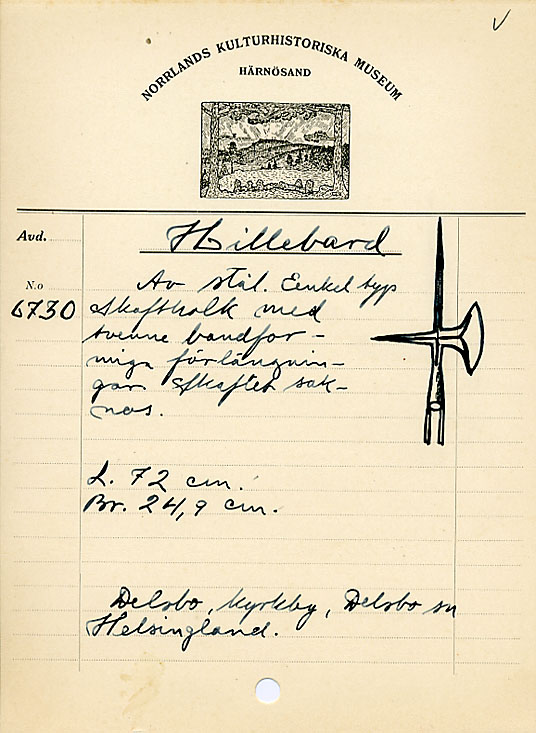 NORRLANDS KULTURHISTORISKA MUSEUM
HÄRNÖSAND
Avd.
Hillebard
N:o
6730
Av stål. Eenkel typ
Skaftholk med
tvenne bandfor-
miga förlängnin-
gar Skaftet sak-
nas.
L. 72 cm.
Br. 24,9 cm.
Delsbo, kyrkby, Delsbo sn
Helsingland.